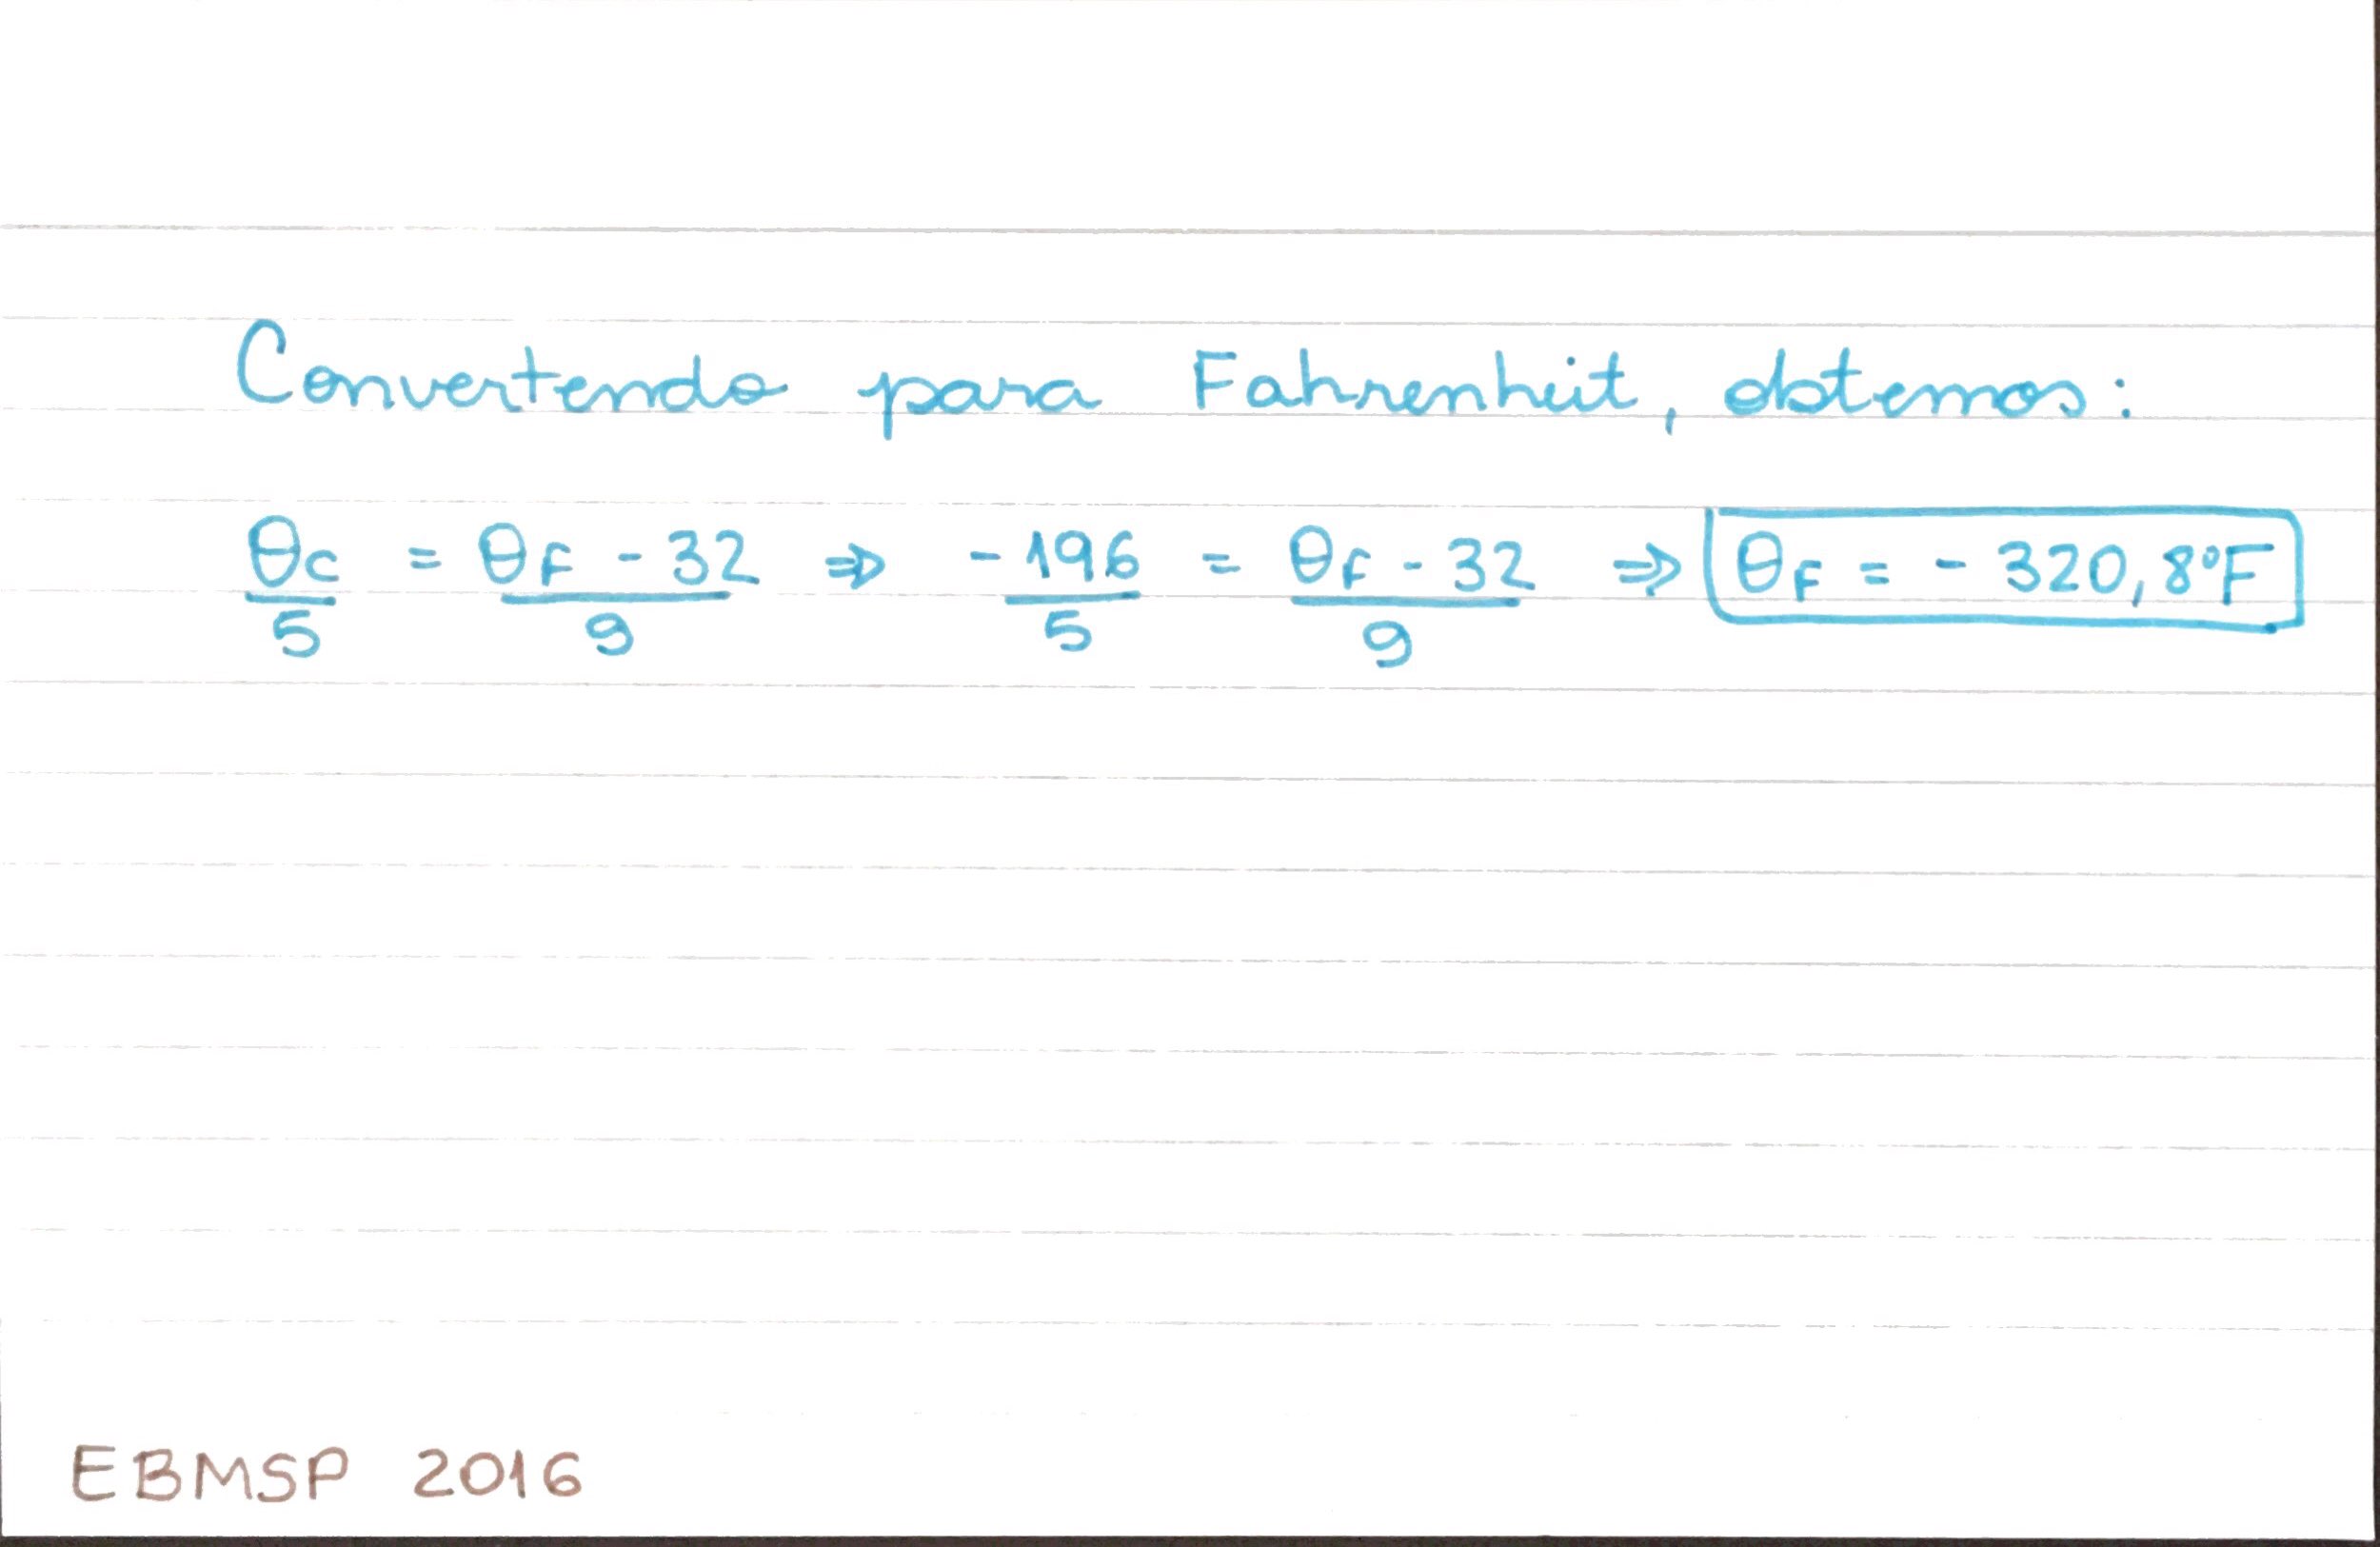 Convertendo para Fahrenheit, obtemos:
θc/5 = θF - 32/9 ⇒ - 196/5 = θF - 32/9 ⇒ θF = - 320,8°F
EBMSP 2016